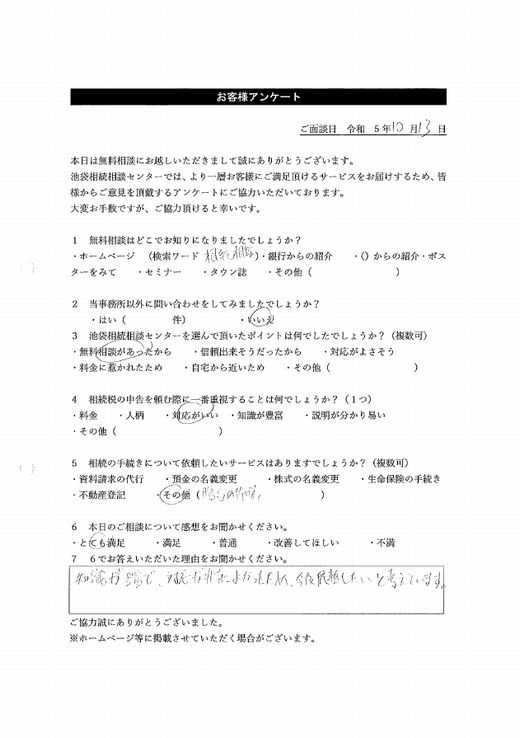 お客様アンケート
ご面談日 令和 5年10月13日
本日は無料相談にお越しいただきまして誠にありがとうございます。
池袋相続相談センターでは、より一層お客様にご満足頂けるサービスをお届けするため、皆
様からご意見を頂戴するアンケートにご協力いただいております。
大変お手数ですが、ご協力頂けると幸いです。
1 無料相談はどこでお知りになりましたでしょうか？
・ホームページ （検索ワード 相続相談）・銀行からの紹介 ・()からの紹介・ポス
ターをみて ・セミナー ・タウン誌 ・その他（ ）
2 当事務所以外に問い合わせをしてみましたでしょうか？
・はい（ 件） ・いいえ
3 池袋相続相談センターを選んで頂いたポイントは何でしたでしょうか？（複数可）
・無料相談があったから ・信頼出来そうだったから ・対応がよさそう
・料金に惹かれたため ・自宅から近いため ・その他（ ）
4 相続税の申告を頼む際に一番重視することは何でしょうか？（１つ）
・料金 ・人柄 ・対応がいい ・知識が豊富 ・説明が分かり易い
・その他（ ）
5 相続の手続きについて依頼したいサービスはありますでしょうか？（複数可）
・資料請求の代行 ・預金の名義変更 ・株式の名義変更 ・生命保険の手続き
・不動産登記 ・その他（ ）
6 本日のご相談について感想をお聞かせください。
・とても満足 ・満足 ・普通 ・改善してほしい ・不満
7 6でお答えいただいた理由をお聞かせください。
知識が豊富で、対応が非常によかったため、今後依頼したいと考えています。
ご協力誠にありがとうございました。
※ホームページ等に掲載させていただく場合がございます。